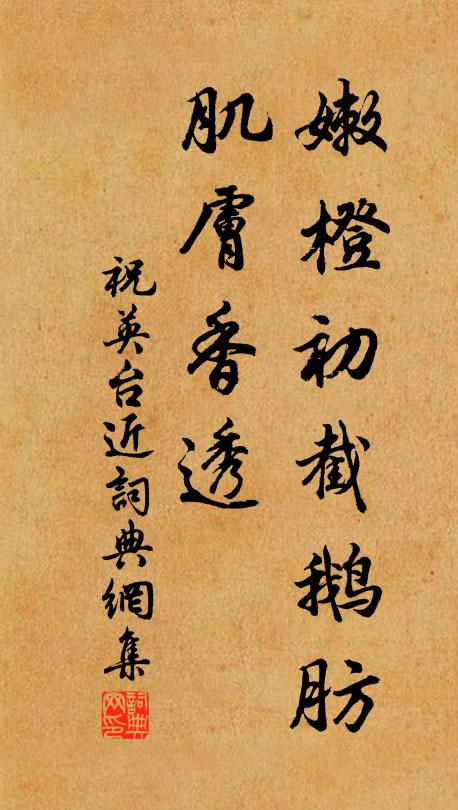 嫩橙初截鹅肪
肌膚香透
祝英台近詞典網集
詞典
网印